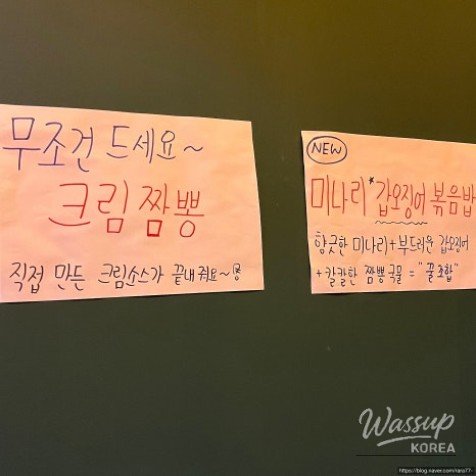 무조건 드세요~
크림짬뽕
직접 만든 크림소스가 끝내줘요~
NEW
미나리*갑오징어 볶음밥
향긋한 미나리+부드러운 갑오징어
+칼칼한 짬뽕국물 = "꿀조합"
Wassup
KOREA